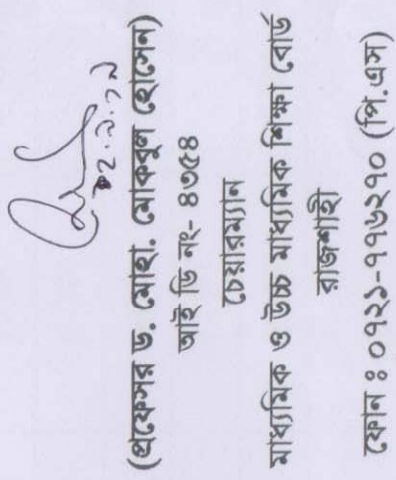 (প্রফেসর ড. মোহা. মোকবুল হোসেন)
আই ডি নং- ৪৩৫৪
চেয়ারম্যান
মাধ্যমিক ও উচ্চ মাধ্যমিক শিক্ষা বোর্ড
রাজশাহী
ফোন ঃ ০৭২১-৭৭৬২৭০ (পি.এস)